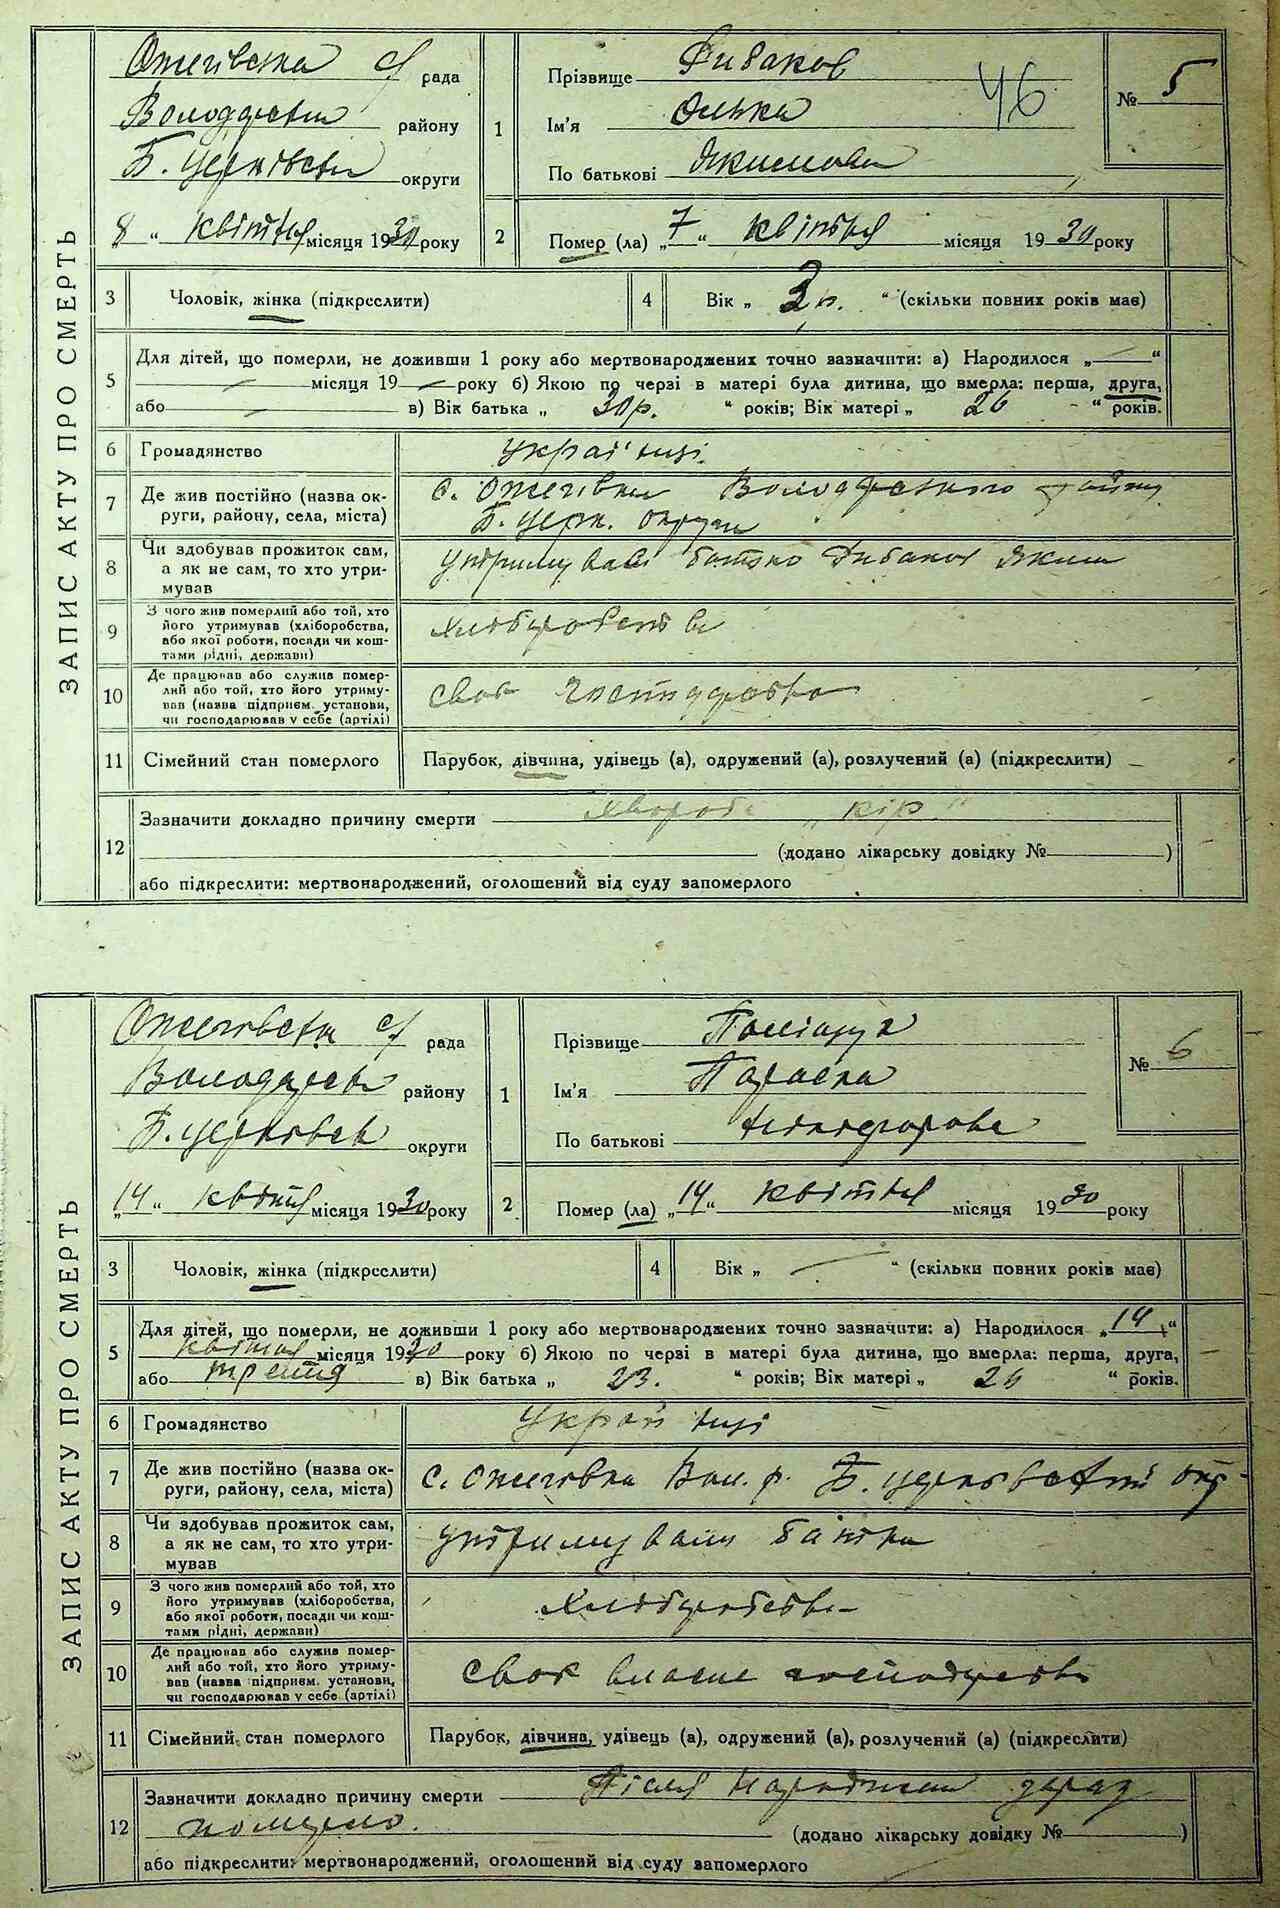 ЗАПИС АКТУ ПРО СМЕРТЬ
Ожегівська с/ рада
Володарськ району
Б. Церківськ округи
8 " квітня місяця 1930 року
1
Прізвище Рибаков
Ім'я Олька
По батькові Якимова
46
№ 5
2 Помер (ла) „ 7 " квітня місяця 1930 року
3 Чоловік, жінка (підкреслити)
4 Вік „ 3 р. " (скільки повних років має)
5 Для дітей, що померли, не доживши 1 року або мертвонароджених точно зазначити: а) Народилося „ — "
— місяця 19 — року б) Якою по черзі в матері була дитина, що вмерла: перша, друга,
або — в) Вік батька „ 30р. " років; Вік матері „ 26 " років.
6 Громадянство Україниці
7 Де жив постійно (назва округи, району, села, міста) с. Ожегівка Володарського району
Б. Церк. округи
8 Чи здобував прожиток сам,
а як не сам, то хто утри-
мував
утримував батько Рибаков Яким
9 З чого жив померлий або той, хто
його утримував (хліборобства,
або якої роботи, посади чи кош-
тами рідні, держави)
хліборобства
10 Де працював або служив помер-
лий або той, хто його утриму-
вав (назва підприєм. установи,
чи господарював у себе (артілі)
своє господарство
11 Сімейний стан померлого Парубок, дівчина, удівець (а), одружений (а), розлучений (а) (підкреслити)
12 Зазначити докладно причину смерти хвороба „кір"
(додано лікарську довідку № )
або підкреслити: мертвонароджений, оголошений від суду запомерлого
ЗАПИС АКТУ ПРО СМЕРТЬ
Ожегівська с/ рада
Володарськ району
Б. Церківськ округи
„14" квітня місяця 1930 року
1
Прізвище
Ім'я Параска
По батькові Никифорова
№ 6
2 Помер (ла) „14" квітня місяця 1930 року
3 Чоловік, жінка (підкреслити)
4 Вік „ — " (скільки повних років має)
5 Для дітей, що померли, не доживши 1 року або мертвонароджених точно зазначити: а) Народилося „14"
квітня місяця 1930 року б) Якою по черзі в матері була дитина, що вмерла: перша, друга,
або третя в) Вік батька „ 23. " років; Вік матері „ 26 " років.
6 Громадянство Україниці
7 Де жив постійно (назва округи, району, села, міста) с. Ожегівка Вол. р. Б. Церківської окр.
8 Чи здобував прожиток сам,
а як не сам, то хто утри-
мував
утримували батьки
9 З чого жив померлий або той, хто
його утримував (хліборобства,
або якої роботи, посади чи кош-
тами рідні, держави)
хліборобства
10 Де працював або служив помер-
лий або той, хто його утриму-
вав (назва підприєм. установи,
чи господарював у себе (артілі)
своє власне господарство
11 Сімейний стан померлого Парубок, дівчина, удівець (а), одружений (а), розлучений (а) (підкреслити)
12 Зазначити докладно причину смерти Після народження зараз
померло.
(додано лікарську довідку № )
або підкреслити: мертвонароджений, оголошений від суду запомерлого